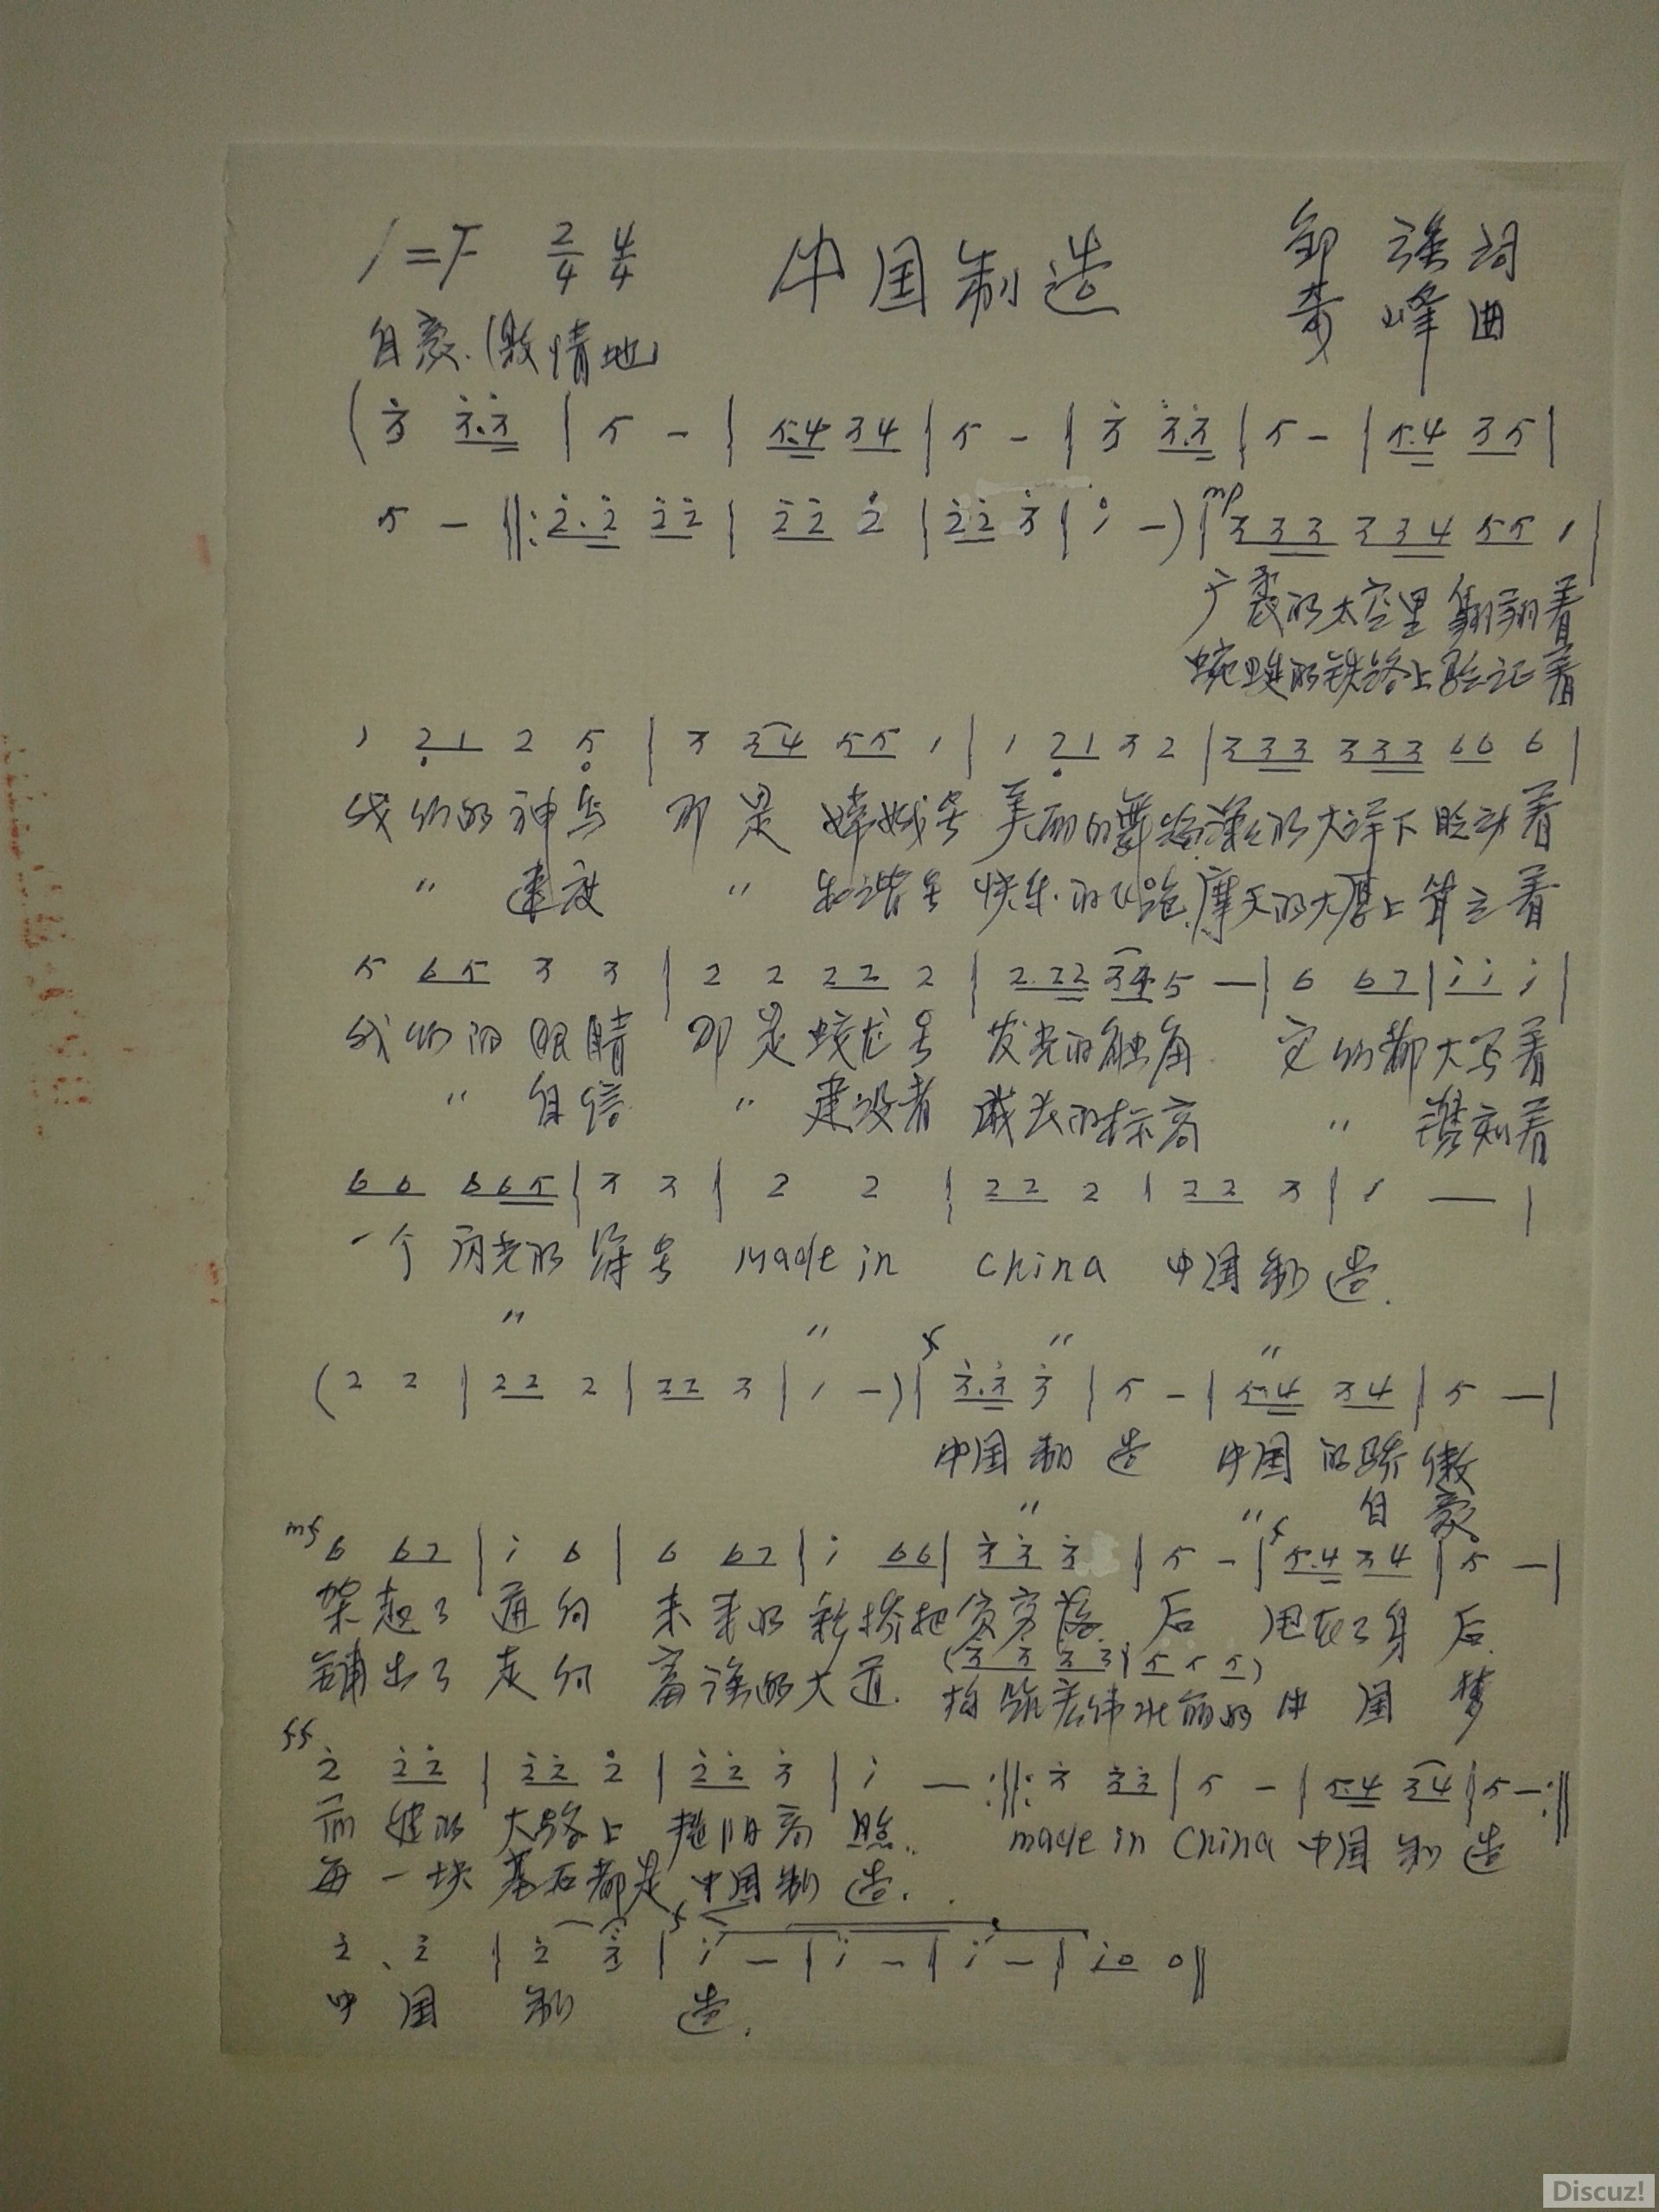 1=F 2/4 4/4 中国制造 邹强词
峰曲
自豪.(激情地)
(3̇ 3̇.3̇ | 5 - | 5.4 34 | 5 - | 3̇ 3̇.3̇ | 5 - | 5.4 35 |
5 - ||: 2̇.2̇ 2̇2̇ | 2̇2̇ 2̇ | 2̇2̇ 3̇ | 1̇ -) | mp 333 334 55 1 |
广袤的太空里翱翔着
蜿蜒的铁路上验证着
1 21 2 5̣ | 3 34 55 1 | 1 21 3 2 | 333 333 66 6 |
我们的神鸟 那是 嫦娥号 美丽的舞蹈 深邃的大洋下眨动着
" 速度 " 和谐号 快乐的飞跑 摩天的大厦上耸立着
5 65 3 3 | 2 2 22 2 | 2.22 34 5 — | 6 67 | 1̇1̇ 1̇ |
我们的眼睛 那是蛟龙号 发光的触角 它们都大写着
" 自信 " 建设者 成长的标高 " 镌刻着
66 665 | 3 3 | 2 2 | 22 2 | 22 3 | 1 — |
一个闪光的符号 made in China 中国制造.
" " " "
(2 2 | 22 2 | 22 3 | 1 -) | f 3̇.3̇ 3̇ | 5 - | 5.4 34 | 5 — |
中国制造 中国的骄傲
" " 自豪
mf 6 67 | 1̇ 6 | 6 67 | 1̇ 66 | 3̇ 3̇ 3̇ | 5 - | f 5.4 34 | 5 — |
架起了通向 未来的新桥把贫穷落后 甩在了身后.
(3̇ 3̇ 3̇ 3̇ | 5 5 5)
铺出了走向 富强的大道. 构筑宏伟壮丽的中国梦
ff 2̇ 2̇2̇ | 2̇2̇ 2̇ | 2̇2̇ 3̇ | 1̇ — :||: 3̇ 3̇3̇ | 5 - | 5.4 34 | 5 — :||
大路上艳阳高照.. made in China 中国制造
每一块基石都是中国制造..
2̇ 、 2̇ | 2̇ 3̇ | f 1̇ - | 1̇ - | 1̇ - | 1̇0 0 ||
中国制造.
Discuz!